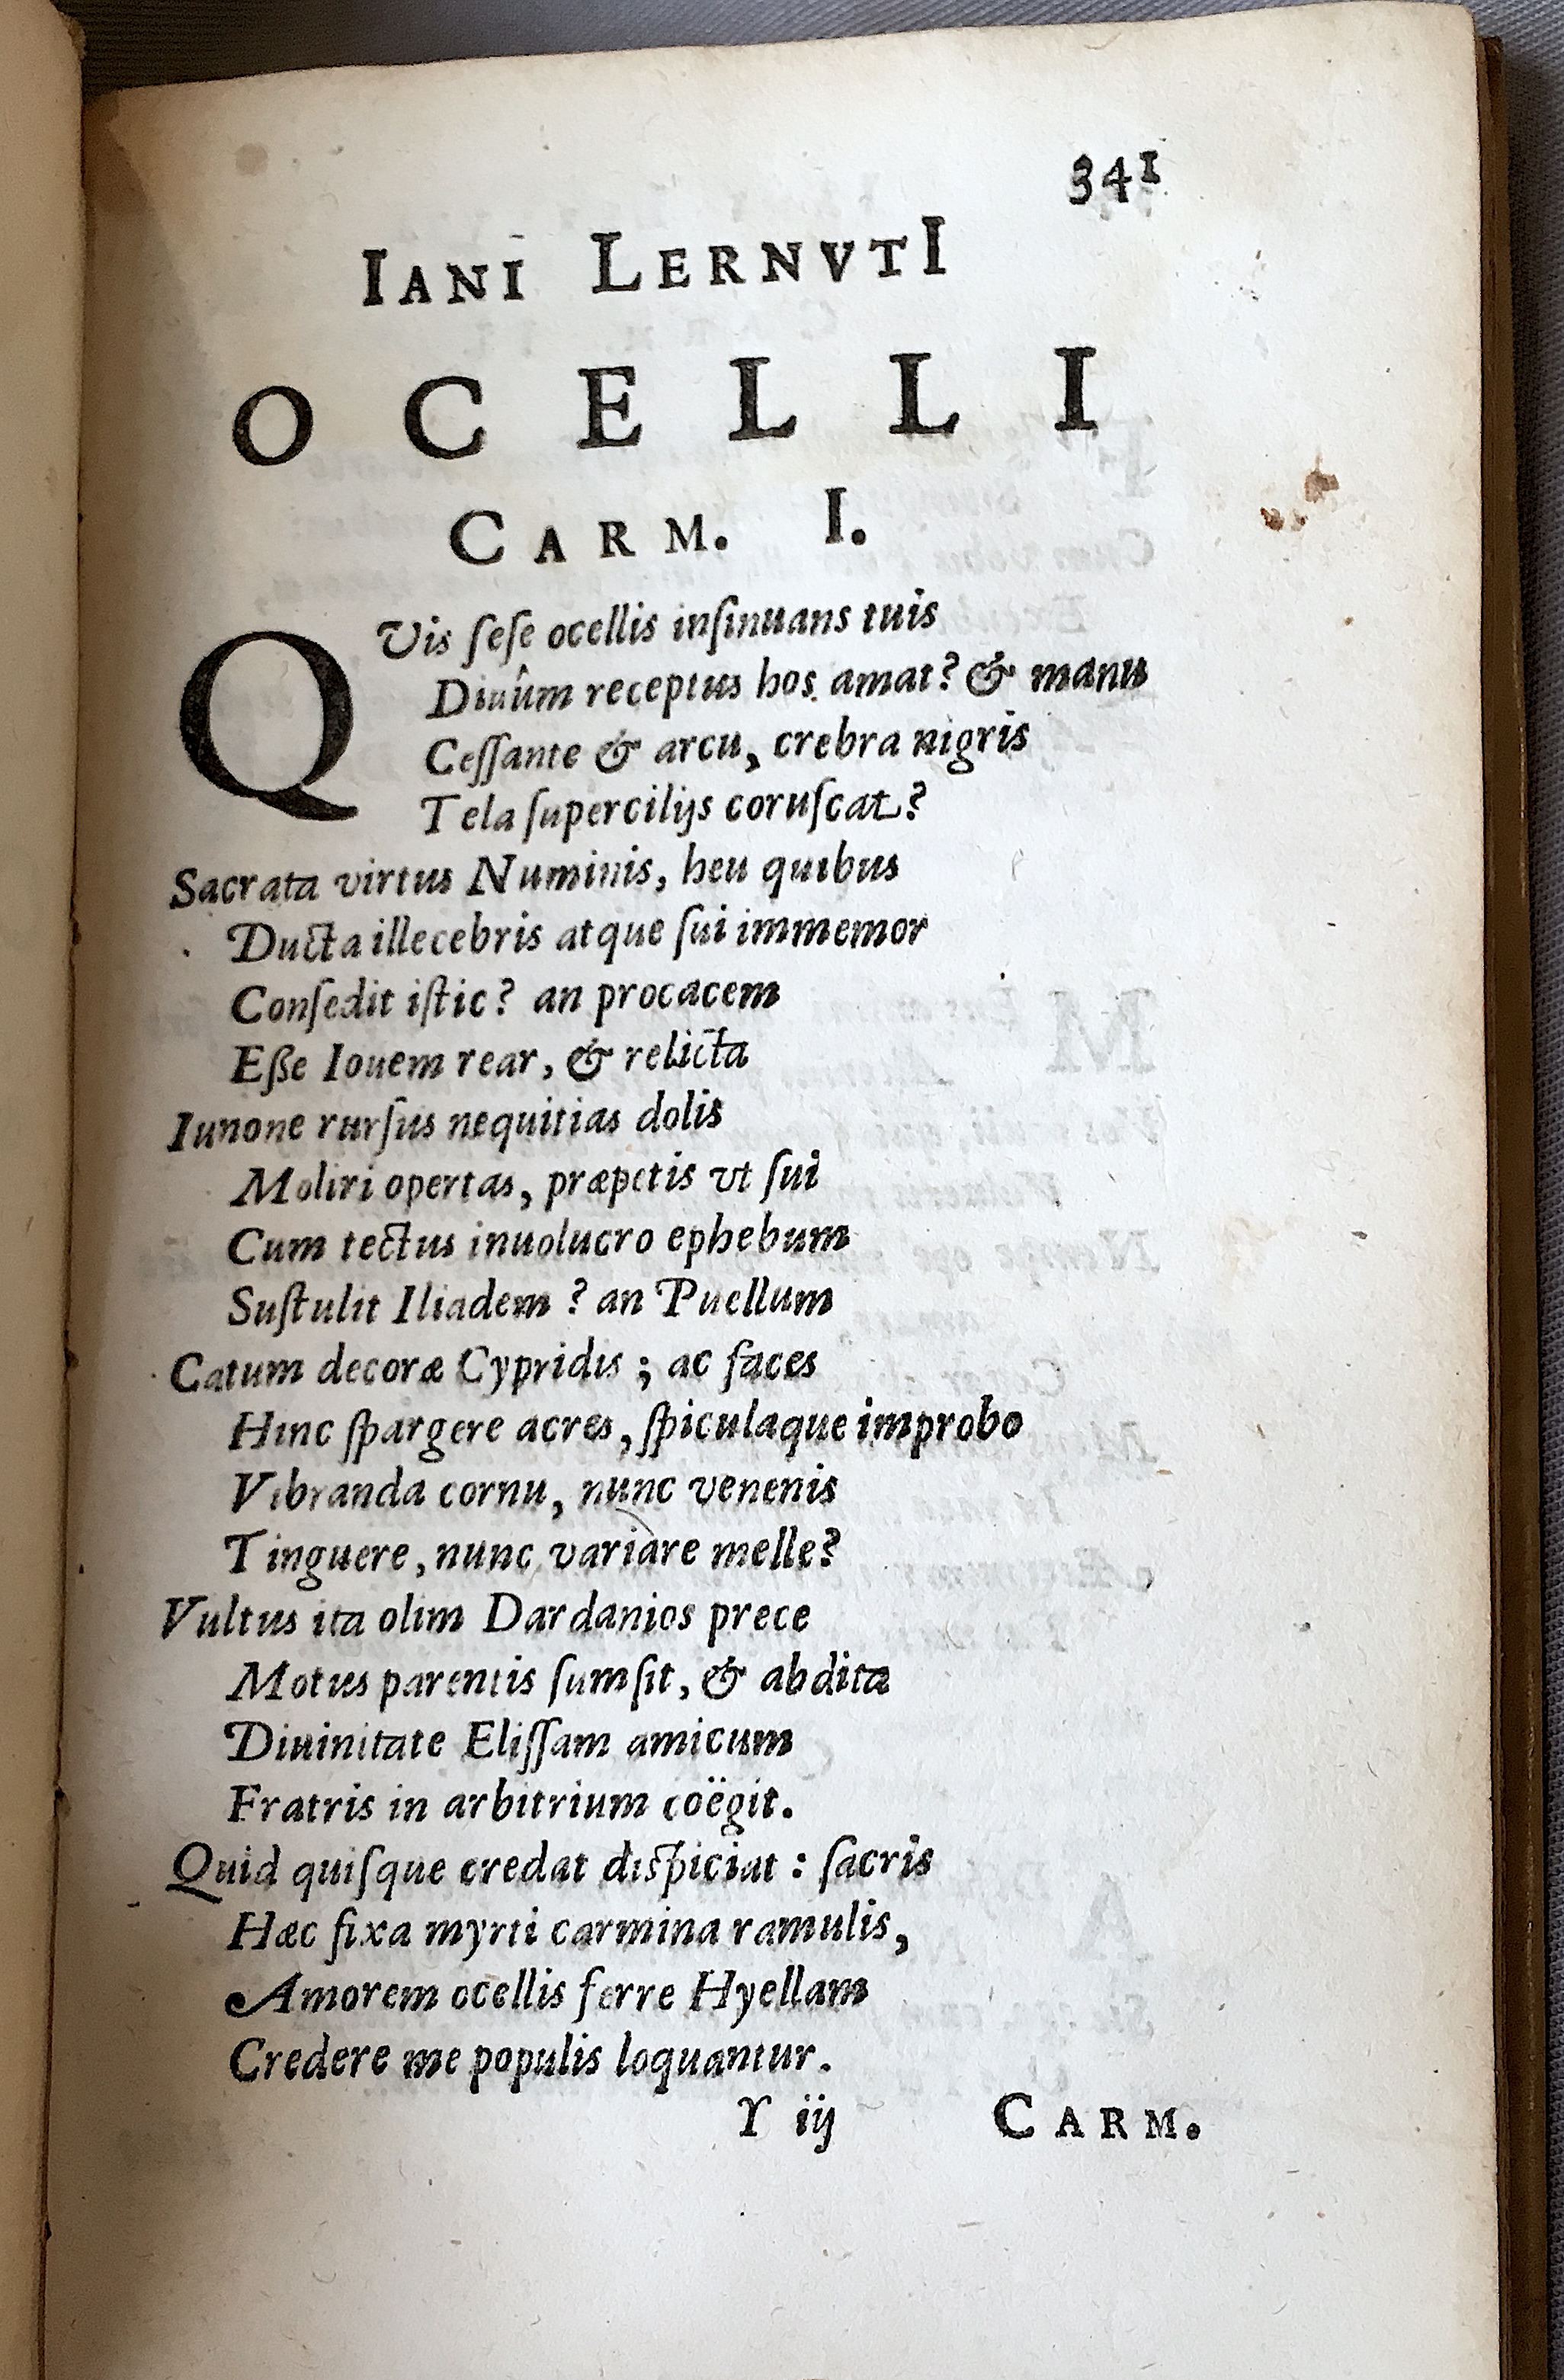 341
IANI LERNVTI
OCELLI
CARM. I.
QVis ſeſe ocellis inſinuans tuis
Diuûm receptus hos amat? & manu
Ceſſante & arcu, crebra nigris
Tela ſupercilijs coruſcat?
Sacrata virtus Numinis, heu quibus
Ducta illecebris atque ſui immemor
Conſedit iſtic? an procacem
Eße Iouem rear, & relicta
Iunone rurſus nequitias dolis
Moliri opertas, præpetis vt ſui
Cum tectus inuolucro ephebum
Suſtulit Iliadem? an Puellum
Catum decoræ Cypridis; ac faces
Hinc ſpargere acres, ſpiculaque improbo
Vibranda cornu, nunc venenis
Tinguere, nunc variare melle?
Vultus ita olim Dardanios prece
Motus parentis ſumſit, & abdita
Diuinitate Eliſſam amicum
Fratris in arbitrium coëgit.
Quid quiſque credat diſpiciat: ſacris
Hæc fixa myrti carmina ramulis,
Amorem ocellis ferre Hyellam
Credere me populis loquantur.
Y iij CARM.